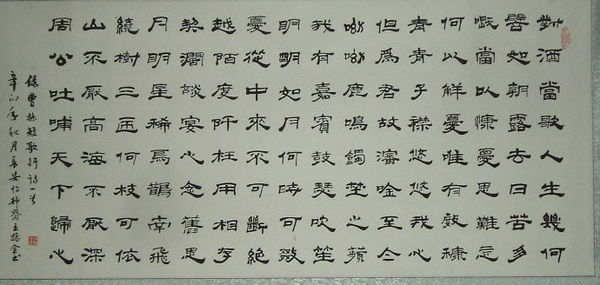 對酒當歌人生幾何
譬如朝露去日苦多
慨當以慷憂思難忘
何以解憂唯有康
青青子襟悠悠我心
但為君故瀋唫至今
呦呦鹿鳴埜之蘋
我有嘉賓鼓瑟吹笙
明明如月何時可掇
憂從中來不可斷絕
越陌度阡枉用相存
契闊談宴心念舊恩
月明星稀烏鵲南飛
繞樹三匝何枝可依
山不厭高海不厭深
周公吐哺天下歸心
錄曹操短歌行詩一首
辛卯年秋月